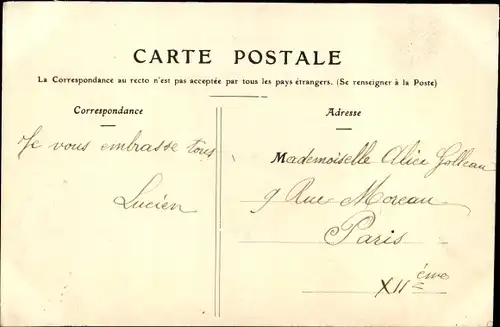 CARTE POSTALE
La Correspondance au recto n'est pas acceptée par tous les pays étrangers. (Se renseigner à la Poste)
Correspondance
Je vous embrasse tous
Lucien
Adresse
Mademoiselle Alice Golleau
9 Rue Moreau
Paris
XII ème